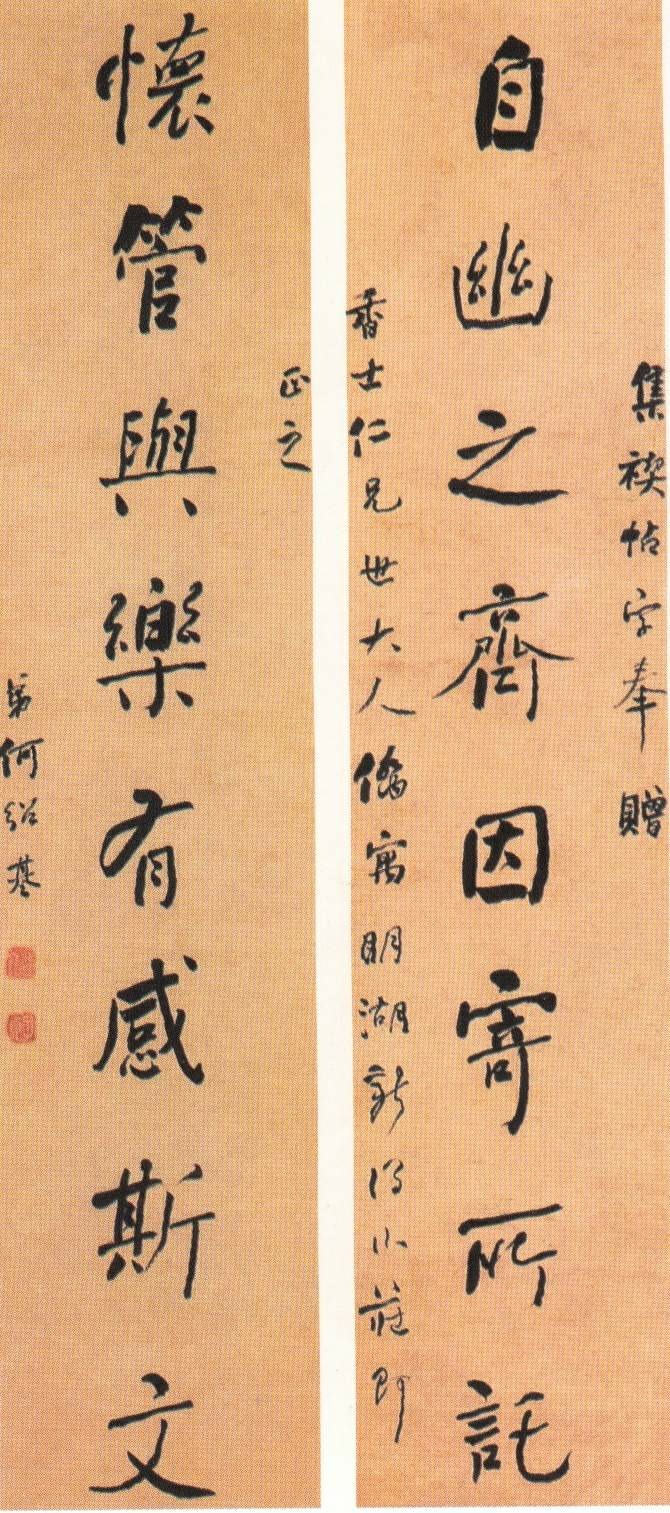 集禊帖字奉贈
自幽之齋因寄所託
香士仁兄世大人僑寓明湖新得小莊即
正之
懷管與樂有感斯文
弟何紹基